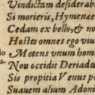 Vindictam desider ab
Si morieris, Hymenæe
Cedam ex bello, & no
Hostes omnes ego
Metuens unum homi
Non occidit Deriada
Sic propitia Venus p
Suavem alium Adon